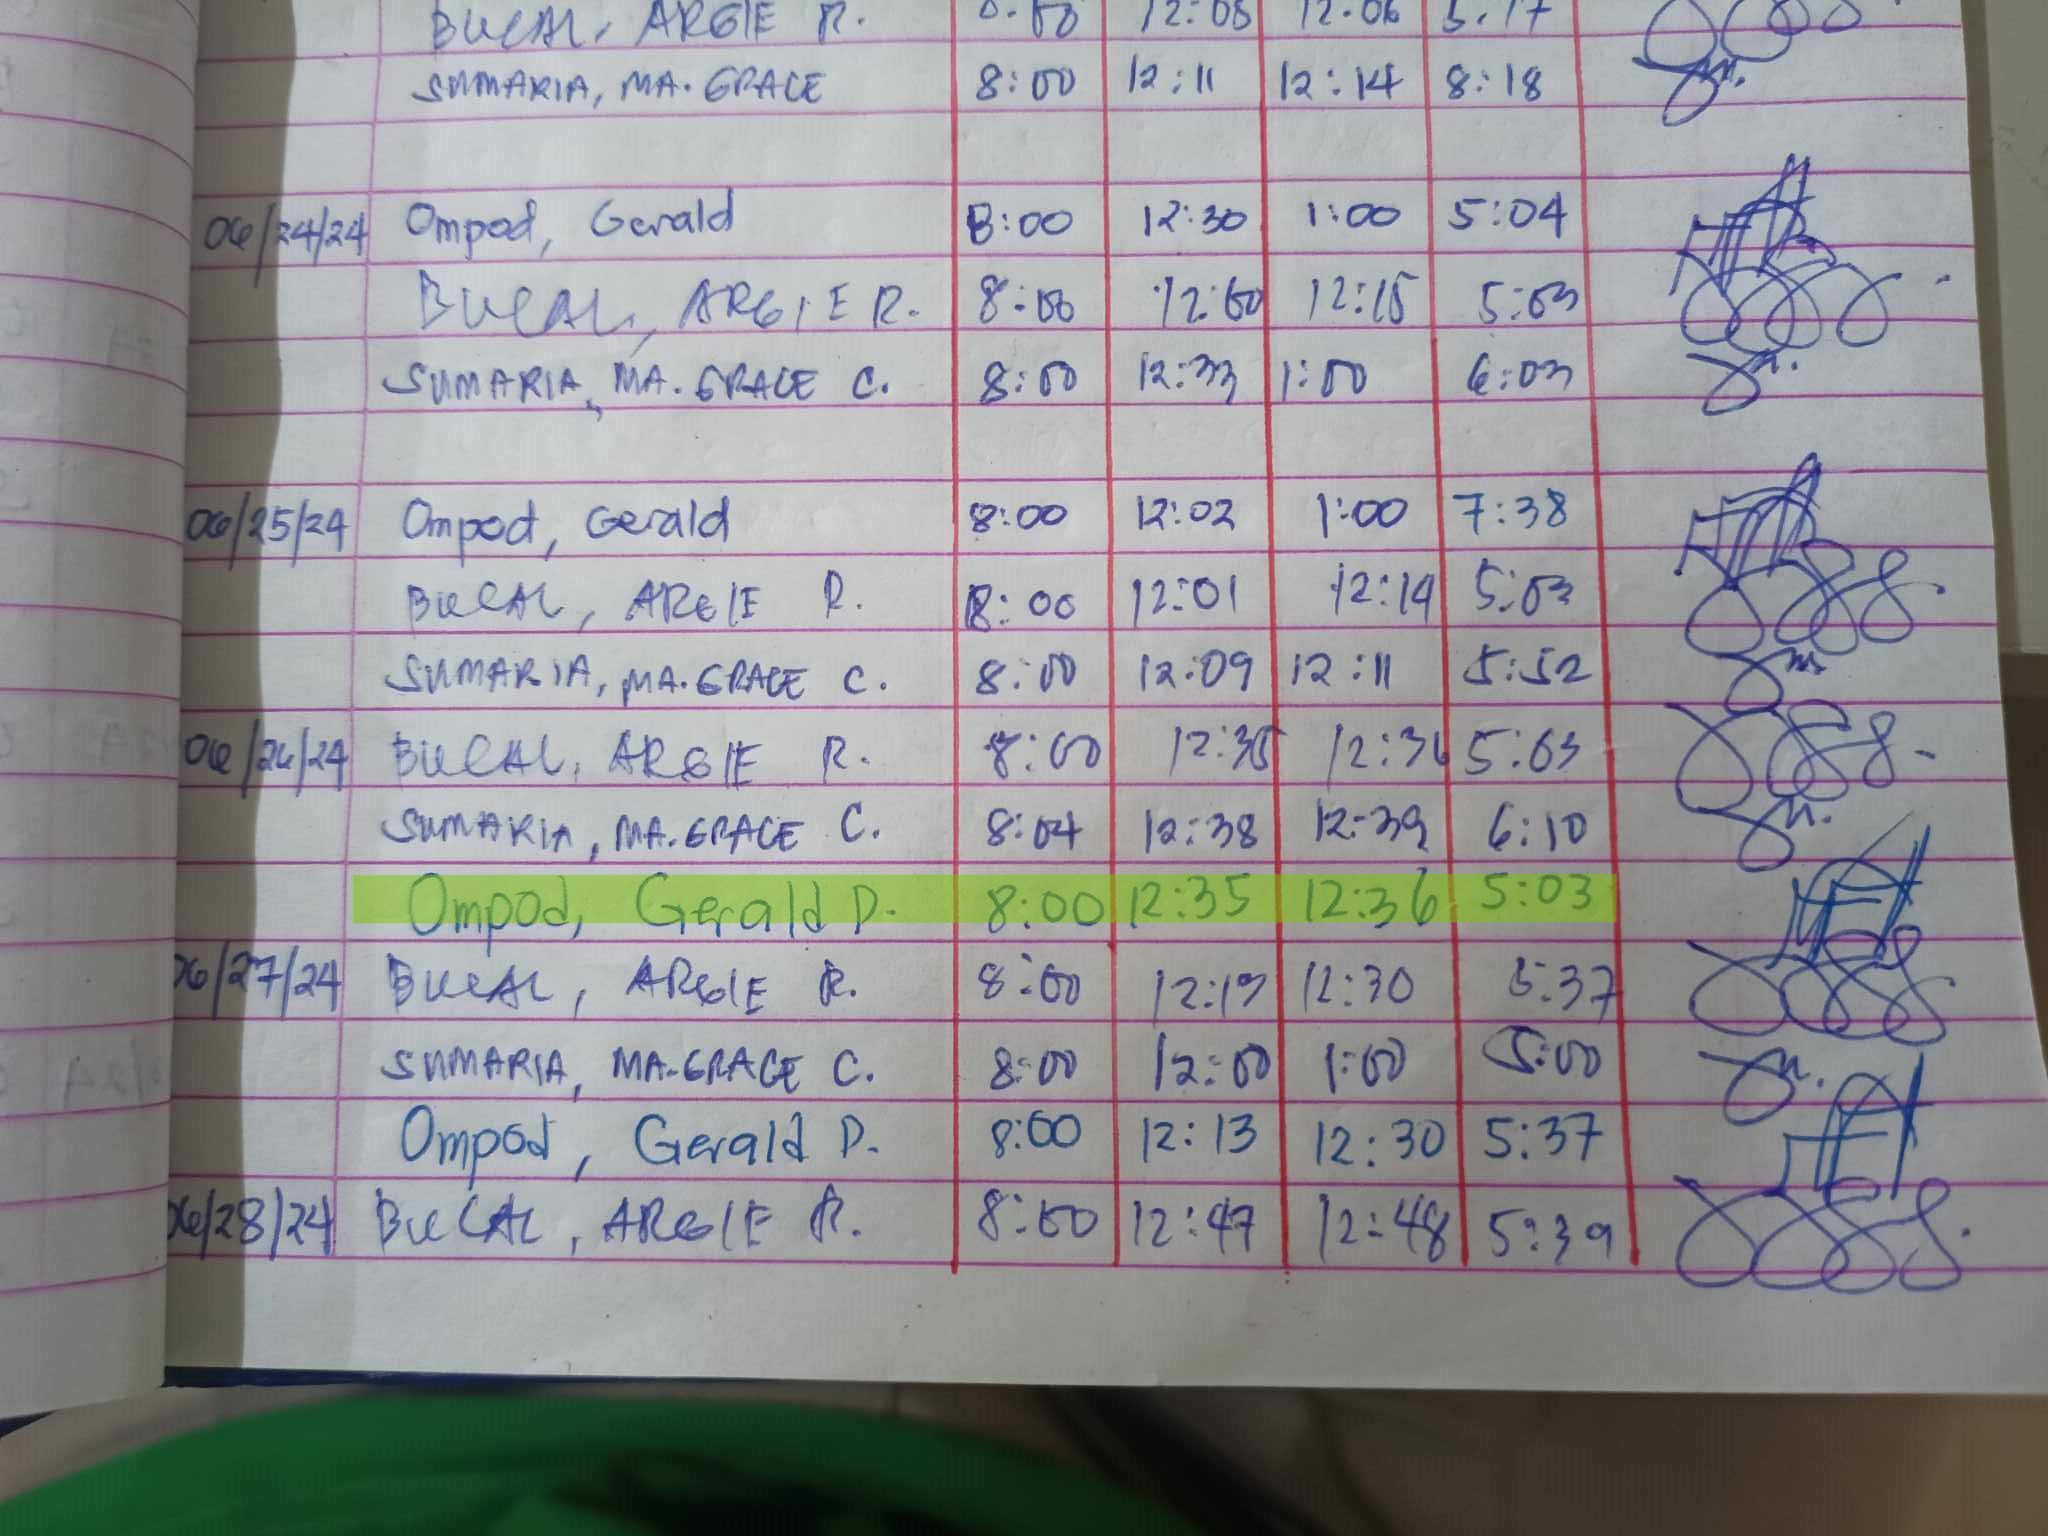 BUCAL, ARGIE R. 8:00 12:05 12:06 5:17
SUMARIA, MA. GRACE 8:00 12:11 12:14 8:18
06/24/24 Ompod, Gerald 8:00 12:30 1:00 5:04
BUCAL, ARGIE R. 8:00 12:00 12:15 5:03
SUMARIA, MA. GRACE C. 8:00 12:33 1:00 6:03
06/25/24 Ompod, Gerald 8:00 12:02 1:00 7:38
BUCAL, ARGIE R. 8:00 12:01 12:14 5:03
SUMARIA, MA. GRACE C. 8:00 12:09 12:11 5:52
06/26/24 BUCAL, ARGIE R. 8:00 12:35 12:36 5:03
SUMARIA, MA. GRACE C. 8:04 12:38 12:39 6:10
Ompod, Gerald D. 8:00 12:35 12:36 5:03
06/27/24 BUCAL, ARGIE R. 8:00 12:13 12:30 5:37
SUMARIA, MA. GRACE C. 8:00 12:00 1:00 5:00
Ompod, Gerald D. 8:00 12:13 12:30 5:37
06/28/24 BUCAL, ARGIE R. 8:00 12:47 12:48 5:39